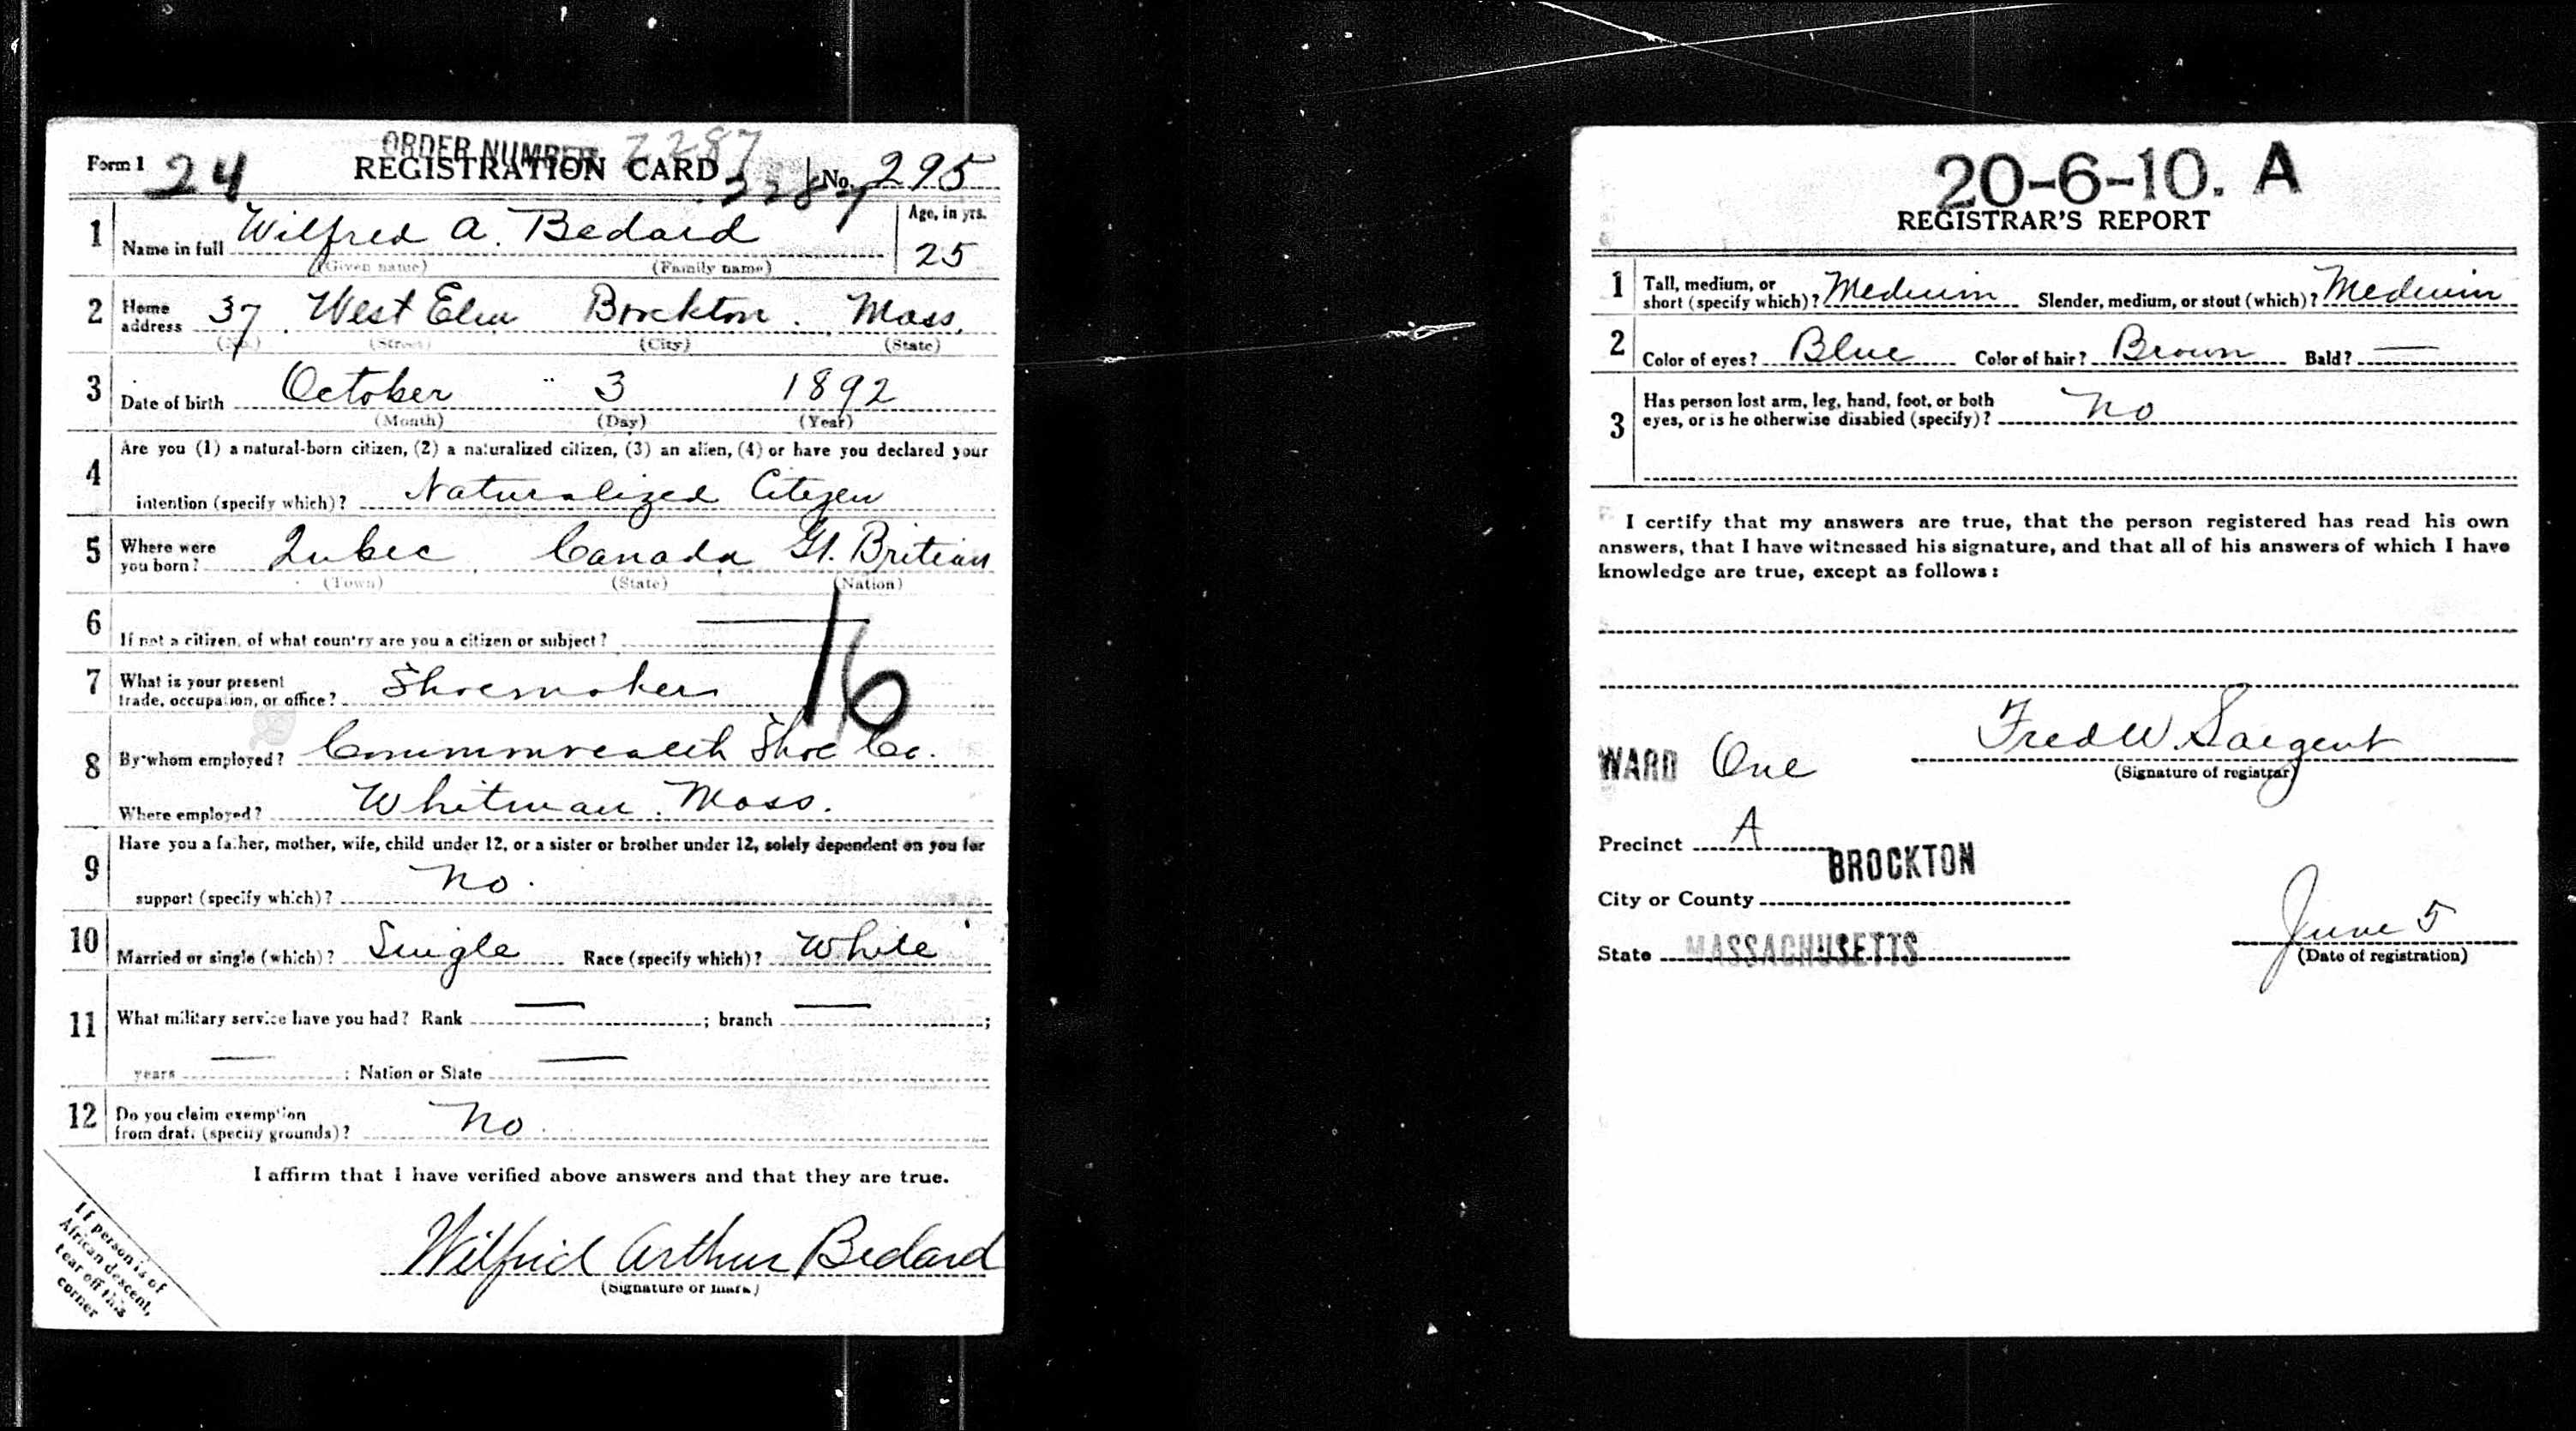 ORDER NUMBER 2287
Form 1 24 REGISTRATION CARD 2287 No. 295
1 Name in full Wilfred A. Bedard Age, in yrs. 25
(Given name) (Family name)
2 Home address 37 West Elm Brockton. Mass.
(No.) (Street) (City) (State)
3 Date of birth October 3 1892
(Month) (Day) (Year)
4 Are you (1) a natural-born citizen, (2) a naturalized citizen, (3) an alien, (4) or have you declared your
intention (specify which)? Naturalized Citizen
5 Where were you born? Qubec, Canada Gt. Britian
(Town) (State) (Nation)
6 If not a citizen, of what country are you a citizen or subject? —
16
7 What is your present trade, occupation, or office? Shoemaker
8 By whom employed? Commonwealth Shoe Co.
Where employed? Whitman. Mass.
9 Have you a father, mother, wife, child under 12, or a sister or brother under 12, solely dependent on you for
support (specify which)? No.
10 Married or single (which)? Single Race (specify which)? White
11 What military service have you had? Rank — ; branch — ;
years — ; Nation or State —
12 Do you claim exemption
from draft (specify grounds)? No.
I affirm that I have verified above answers and that they are true.
Wilfrid Arthur Bedard
(Signature or mark)
If person is of
African descent,
tear off this
corner
20-6-10. A
REGISTRAR'S REPORT
1 Tall, medium, or
short (specify which)? Medium Slender, medium, or stout (which)? Medium
2 Color of eyes? Blue Color of hair? Brown Bald? —
3 Has person lost arm, leg, hand, foot, or both
eyes, or is he otherwise disabled (specify)? No
I certify that my answers are true, that the person registered has read his own
answers, that I have witnessed his signature, and that all of his answers of which I have
knowledge are true, except as follows:
Fred W. Sargent
WARD One (Signature of registrar)
Precinct A
City or County BROCKTON
June 5
State MASSACHUSETTS (Date of registration)